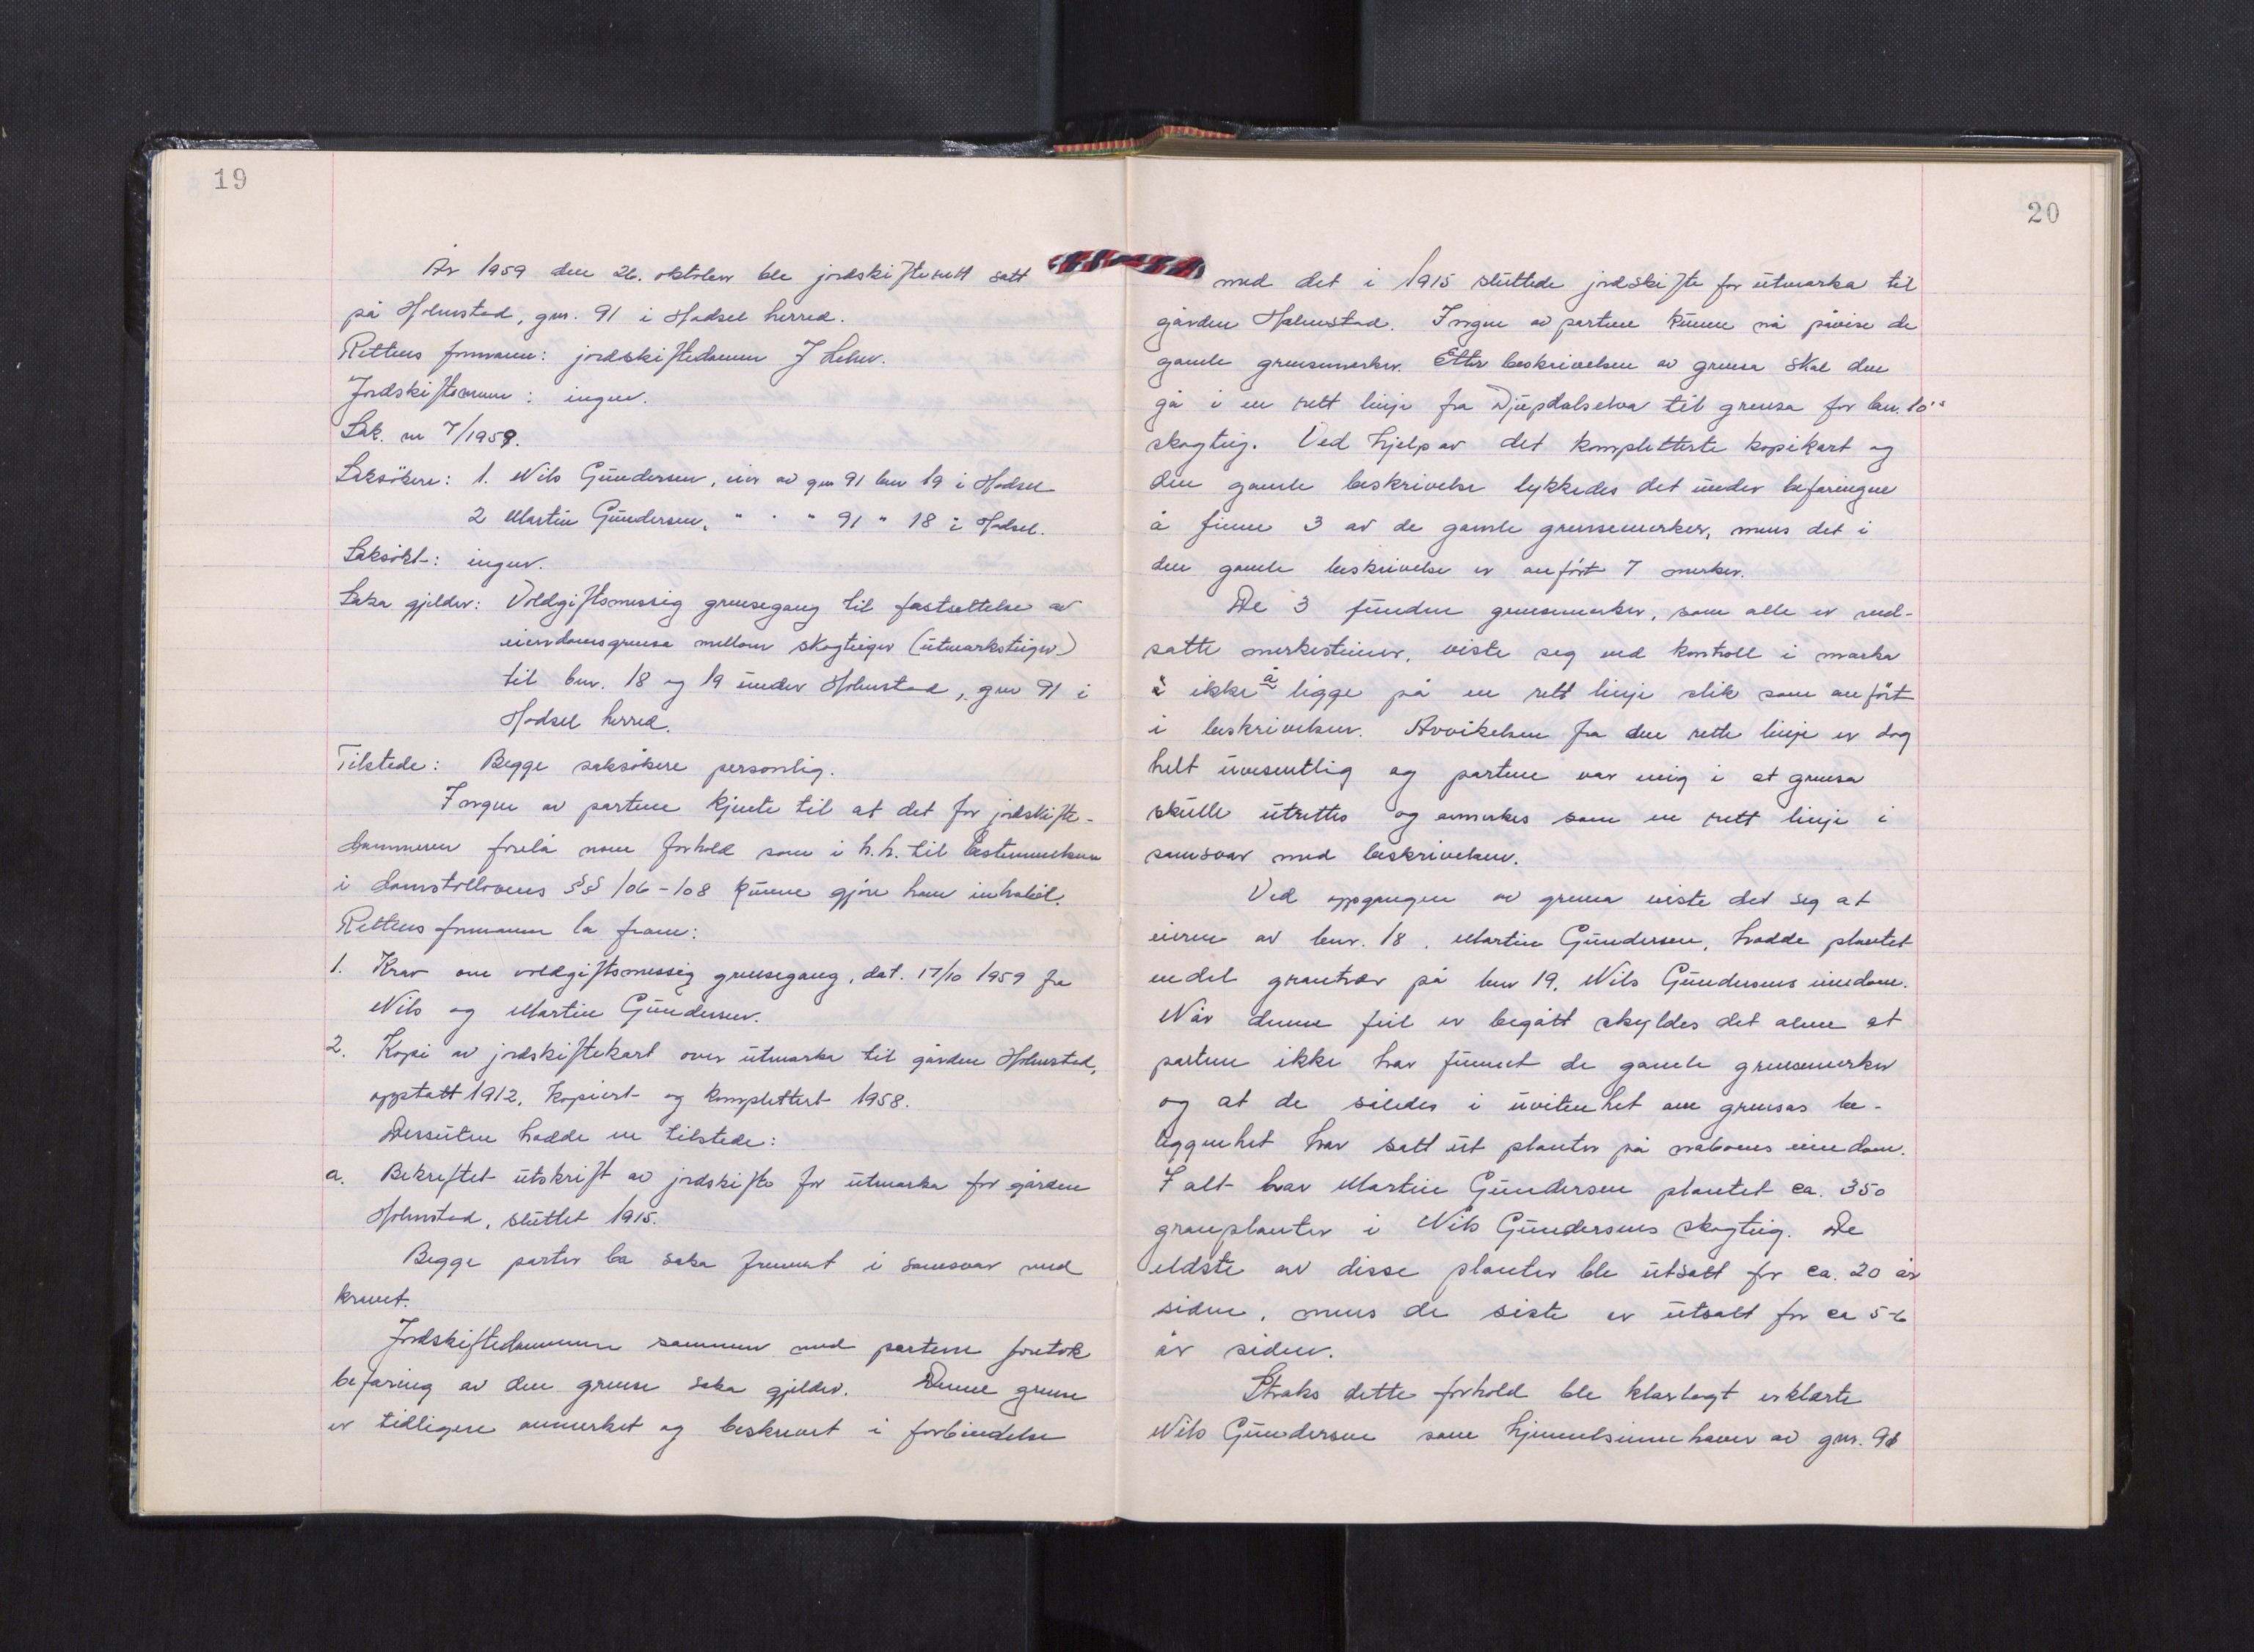 19
År 1959 den 26. oktober ble jordskifterett satt
på Holmstad, gnr. 91 i Hadsel herred.
Rettens formann: jordskiftedommer J Lehn.
Jordskiftemenn: ingen.
Sak. nr 7/1959.
Saksökere: 1. Nils Gundersen, eier av gnr 91 bnr 19 i Hadsel
2 Martin Gundersen, " " " 91 " 18 i Hadsel.
Saksökt: ingen.
Saka gjelder: Voldgiftsmessig grensegang til fastsettelse av
eiendomsgrensa mellom skogteiger (utmarksteiger)
til bnr. 18 og 19 under Holmstad, gnr 91 i
Hadsel herred.
Tilstede: Begge saksökere personlig.
Ingen av partene kjente til at det for jordskifte-
dommeren forelå noen forhold som i h.h. til bestemmelsene
i domstollovens §§ 106-108 kunne gjöre ham inhabil.
Rettens formann la fram:
1. Krav om voldgiftsmessig grensegang, dat. 17/10 1959 fra
Nils og Martin Gundersen.
2. Kopi av jordskiftekart over utmarka til gården Holmstad,
oppstatt 1912, kopiert og komplettert 1958.
Dessuten hadde en tilstede:
a. Bekreftet utskrift av jordskifte for utmarka for gården
Holmstad, sluttet 1915.
Begge parter ba saka fremmet i samsvar med
kravet.
Jordskiftedommeren sammen med partene foretok
befaring av den grense saka gjelder. Denne grense
er tidligere avmerket og beskrevet i forbindelse
20
med det i 1915 sluttede jordskifte for utmarka til
gården Holmstad. Ingen av partene kunne nå påvise de
gamle grensemerker. Etter beskrivelsen av grensa skal den
gå i en rett linje fra Djupdalselva til grensa for bnr. 10's
skogteig. Ved hjelp av det kompletterte kopikart og
den gamle beskrivelse lykkedes det under befaringen
å finne 3 av de gamle grensemerker, mens det i
den gamle beskrivelse er anfört 7 merker.
De 3 funden grensemerker, som alle er ned-
satte merkesteiner, viste seg ved kontroll i marka
å ikke å ligge på en rett linje slik som anfört
i beskrivelsen. Avvikelsen fra den rette linje er dog
helt uvesentlig og partene var enig i at grensa
skulle utrettes og avmerkes som en rett linje i
samsvar med beskrivelsen.
Ved oppgangen av grensa viste det seg at
eieren av bnr. 18, Martin Gundersen, hadde plantet
endel grantrær på bnr 19, Nils Gundersens eiendom.
Når denne feil er begått skyldes det alene at
partene ikke har funnet de gamle grensemerker
og at de således i uvitenhet om grensas be-
liggenhet har satt ut planter på naboens eiendom.
I alt har Martin Gundersen plantet ca. 350
granplanter i Nils Gundersens skogteig. De
eldste av disse planter ble utsatt for ca. 20 år
siden, mens de siste er utsatt for ca 5-6
år siden.
Straks dette forhold ble klarlagt erklærte
Nils Gundersen som hjemmelsinnehaver av gnr. 91